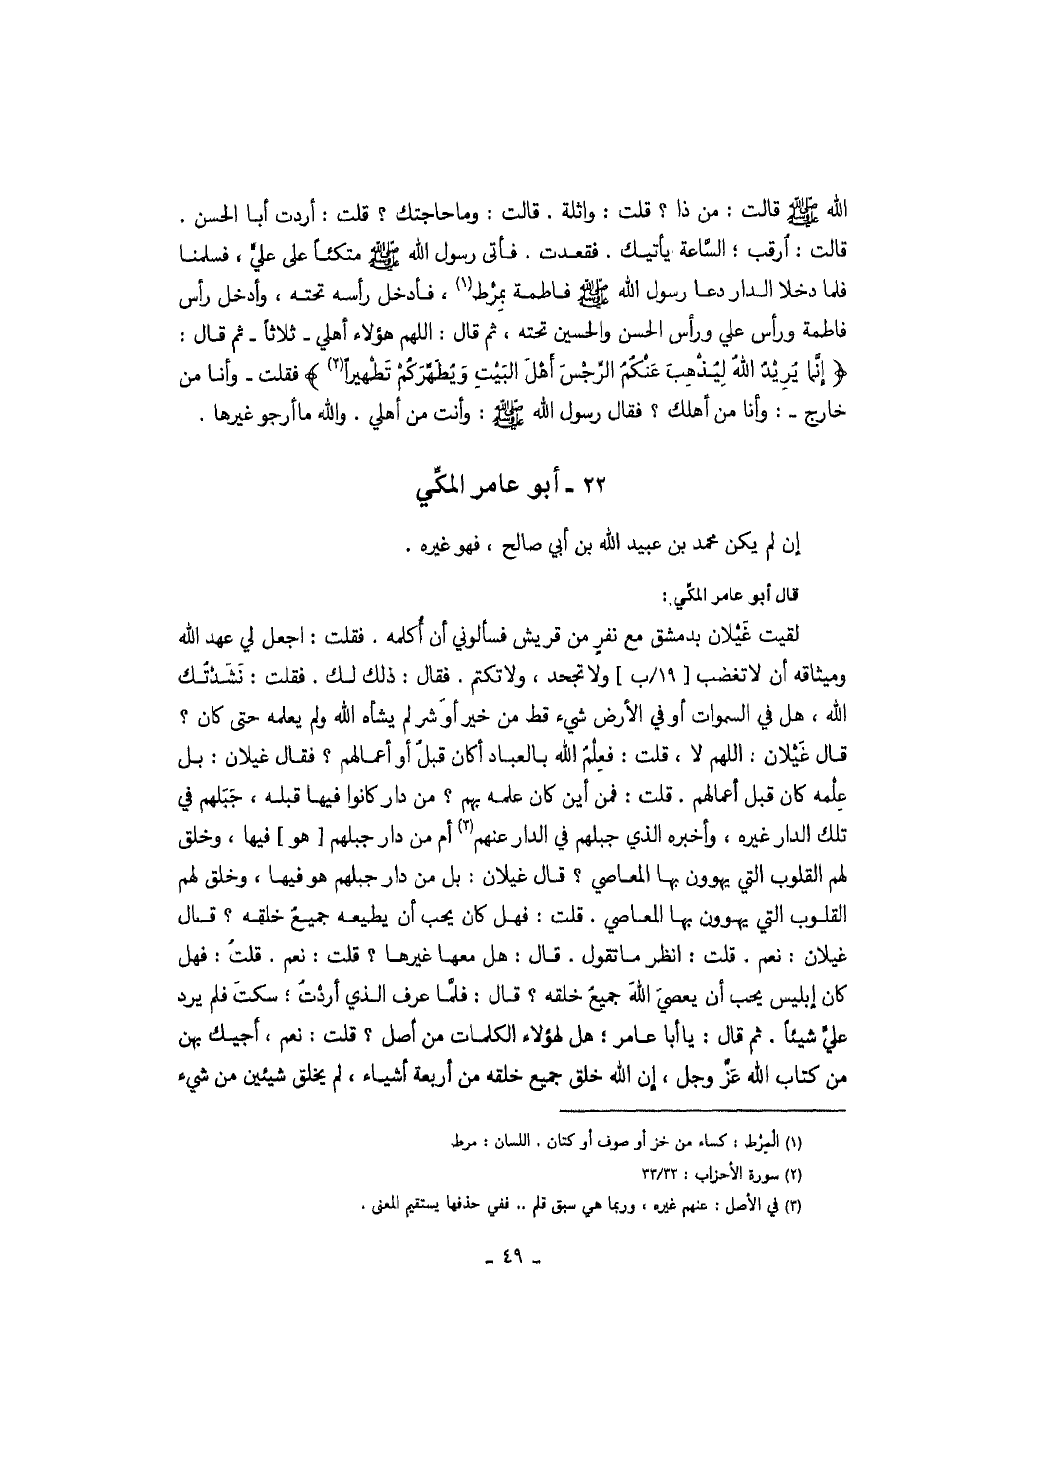 الله ﷺ قالت : من ذا ؟ قلت : واثلة . قالت : وماحاجتك ؟ قلت : أردت أبا الحسن .
قالت : أرقب ؛ السَّاعة يأتيك . فقعدت . فأتى رسول الله ﷺ متكئاً على عليٍّ ، فسلمنا
فلما دخلا الدار دعا رسول الله ﷺ فاطمة بِمِرْط(١) ، فأدخل رأسه تحته ، وأدخل رأس
فاطمة ورأس علي ورأس الحسن والحسين تحته ، ثم قال : اللهم هؤلاء أهلي ـ ثلاثاً ـ ثم قال :
﴿ إنَّما يُرِيْدُ اللهُ لِيُذْهِبَ عَنْكُمُ الرِّجْسَ أَهْلَ البَيْتِ وَيُطَهِّرَكُمْ تَطْهِيراً(٢) ﴾ فقلت ـ وأنا من
خارج ـ : وأنا من أهلك ؟ فقال رسول الله ﷺ : وأنت من أهلي . والله ماأرجو غيرها .
٢٢ ـ أبو عامر المكِّي
إن لم يكن محمد بن عبيد الله بن أبي صالح ، فهو غيره .
قال أبو عامر المكِّي :
لقيت غَيْلان بدمشق مع نفرٍ من قريش فسألوني أن أُكلمه . فقلت : اجعل لي عهد الله
وميثاقه أن لاتغضب [ ١٩/ب ] ولاتجحد ، ولاتكتم . فقال : ذلك لك . فقلت : نَشَدْتُك
الله ، هل في السموات أو في الأرض شيء قط من خير أو شر لم يشأه الله ولم يعلمه حتى كان ؟
قال غَيْلان : اللهم لا ، قلت : فعِلْمُ الله بالعباد أكان قبلُ أو أعمالهم ؟ فقال غيلان : بل
عِلْمه كان قبل أعمالهم . قلت : فمن أين كان علمه بهم ؟ من دار كانوا فيها قبله ، جَبَلهم في
تلك الدار غيره ، وأخبره الذي جبلهم في الدار عنهم(٣) أم من دار جبلهم [ هو ] فيها ، وخلق
لهم القلوب التي يهوون بها المعاصي ؟ قال غيلان : بل من دار جبلهم هو فيها ، وخلق لهم
القلوب التي يهوون بها المعاصي . قلت : فهل كان يحب أن يطيعه جميعُ خلقه ؟ قال
غيلان : نعم . قلت : انظر ماتقول . قال : هل معها غيرها ؟ قلت : نعم . قلتُ : فهل
كان إبليس يحب أن يعصيَ اللهَ جميعُ خلقه ؟ قال : فلمَّا عرف الذي أردْتُ ؛ سكتَ فلم يرد
عليَّ شيئاً . ثم قال : ياأبا عامر ؛ هل لهؤلاء الكلمات من أصل ؟ قلت : نعم ، أجيك بهن
من كتاب الله عَزَّ وجل ، إن الله خلق جميع خلقه من أربعة أشياء ، لم يخلق شيئين من شيء
(١) المِرْط : كساء من خز أو صوف أو كتان . اللسان : مرط
(٢) سورة الأحزاب : ٣٣/٣٣
(٣) في الأصل : عنهم غيره ، وربما هي سبق قلم .. ففي حذفها يستقيم المعنى .
ـ ٤٩ ـ